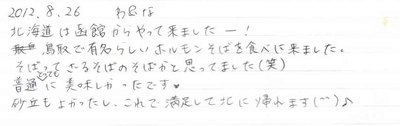 2012.8.26
北海道は函館からやって来ましたー!
鳥取で有名らしいホルモンそばを食べに来ました。
そばってざるそばのそばかと思ってました(笑)
普通にとても美味しかったです♥
砂丘もよかったし、これで満足して北に帰れます(^^)♪